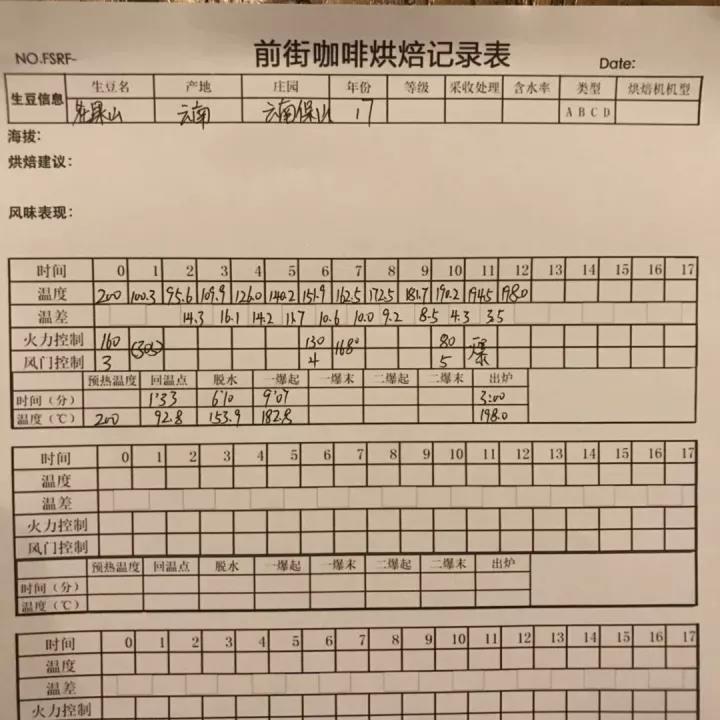 NO.FSRF- 前街咖啡烘焙记录表 Date:
生豆信息 生豆名 产地 庄园 年份 等级 采收处理 含水率 类型 烘焙机机型
花果山 云南 云南保山 17 A B C D
海拔:
烘焙建议:
风味表现:
时间 0 1 2 3 4 5 6 7 8 9 10 11 12 13 14 15 16 17
温度 200 100.3 95.6 109.9 126.0 140.2 151.9 162.5 172.5 181.7 190.2 194.5 198.0
温差 14.3 16.1 14.2 11.7 10.6 10.0 9.2 8.5 4.3 3.5
火力控制 160 (30s) 130 168° 80 爆
风门控制 3 4 5
预热温度 回温点 脱水 一爆起 一爆末 二爆起 二爆末 出炉
时间（分） 1'33 6'10 9'07 3:00
温度（℃） 200 92.8 153.9 182.8 198.0
时间 0 1 2 3 4 5 6 7 8 9 10 11 12 13 14 15 16 17
温度
温差
火力控制
风门控制
预热温度 回温点 脱水 一爆起 一爆末 二爆起 二爆末 出炉
时间（分）
温度（℃）
时间 0 1 2 3 4 5 6 7 8 9 10 11 12 13 14 15 16 17
温度
温差
火力控制